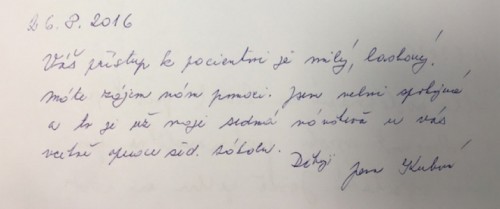 26.8.2016
Váš přístup k pacientovi je milý, laskavý.
Máte zájem nám pomoci. Jsem velmi spokojená
a to je už moje sedmá návštěva u vás
včetně operace šed. zákalu.
Děkuji Jana